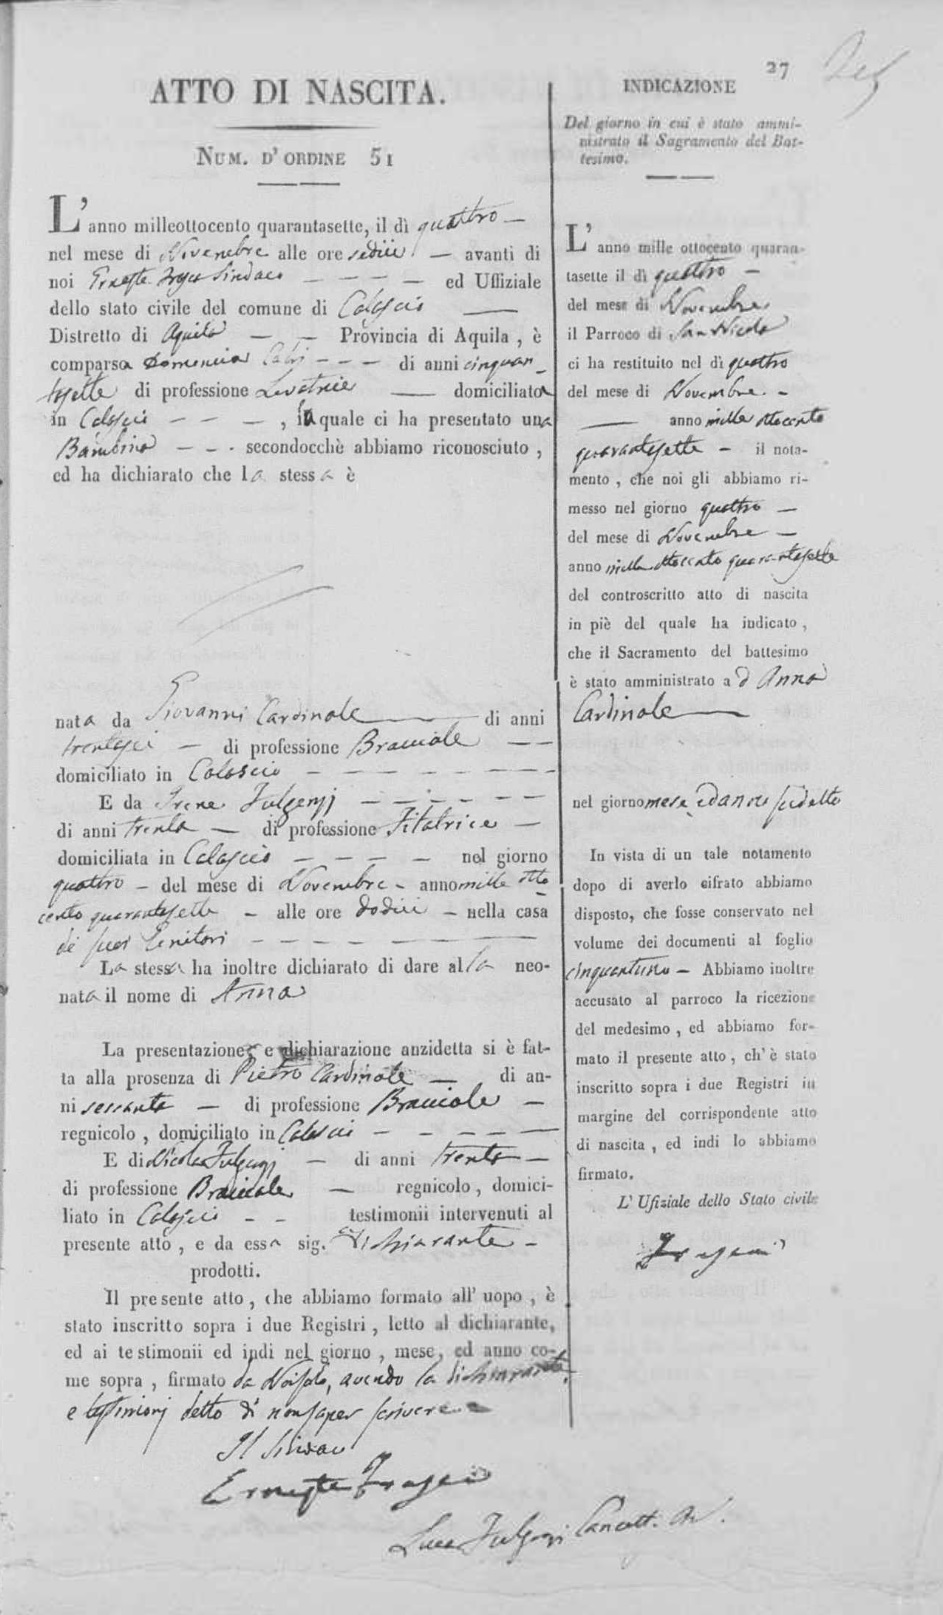 27
ATTO DI NASCITA.
NUM. D'ORDINE 51
L'anno milleottocento quarantasette, il dì quattro
nel mese di Novembre alle ore sedici — avanti di
noi Erneste Sindaco — — — ed Uffiziale
dello stato civile del comune di Calascio —
Distretto di Aquila — — Provincia di Aquila, è
comparsa Domenica — — — di anni cinquan-
tasette di professione Levatrice — domiciliata
in Calascio — — — , la quale ci ha presentato una
Bambina — — . secondocchè abbiamo riconosciuto ,
ed ha dichiarato che la stessa è
nata da Giovanni Cardinale — di anni
trentasei — di professione Bracciale — —
domiciliato in Calascio — — — — — —
E da Irene Fulgenzj — — — — —
di anni trenta — di professione Filatrice —
domiciliata in Calascio — — — — nel giorno
quattro — del mese di Novembre - anno mille otto
cento quarantasette — alle ore dodici — nella casa
de' suoi Genitori — — — — —
La stessa ha inoltre dichiarato di dare alla neo-
nata il nome di Anna
La presentazione, e dichiarazione anzidetta si è fat-
ta alla prosenza di Pietro Cardinale — di an-
ni sessanta — di professione Bracciale —
regnicolo , domiciliato in Calascio — — — — —
E di Nicola Fulgenzj — di anni trenta —
di professione Bracciale — regnicolo , domici-
liato in Calascio — — testimonii intervenuti al
presente atto , e da essa sig. dichiarante —
prodotti.
Il presente atto , che abbiamo formato all' uopo , è
stato inscritto sopra i due Registri , letto al dichiarante,
ed ai testimonii ed indi nel giorno , mese, ed anno co-
me sopra , firmato da Noi solo, avendo la dichiarante,
e testimonj detto di non saper scrivere
Il Sindaco
Erneste
Luca Fulgenzj Cancell.
INDICAZIONE
Del giorno in cui è stato ammi-
nistrato il Sagramento del Bat-
tesimo.
L'anno mille ottocento quaran-
tasette il dì quattro —
del mese di Novembre
il Parroco di San Nicola
ci ha restituito nel dì quattro
del mese di Novembre. -
— anno mille ottocento
quarantasette — il nota-
mento , che noi gli abbiamo ri-
messo nel giorno quattro —
del mese di Novembre —
anno mille ottocento quarantasette
del controscritto atto di nascita
in piè del quale ha indicato ,
che il Sacramento del battesimo
è stato amministrato a d'Anna
Cardinale —
nel giorno mese ed anno sudetto
In vista di un tale notamento
dopo di averlo cifrato abbiamo
disposto, che fosse conservato nel
volume dei documenti al foglio
cinquantuno — Abbiamo inoltre
accusato al parroco la ricezione
del medesimo , ed abbiamo for-
mato il presente atto , ch' è stato
inscritto sopra i due Registri in
margine del corrispondente atto
di nascita , ed indi lo abbiamo
firmato.
L' Ufiziale dello Stato civile